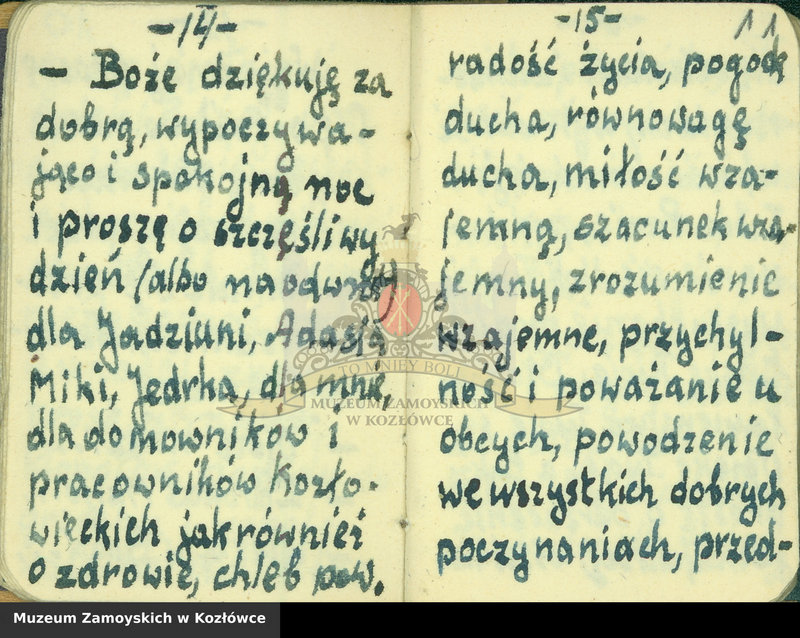 -14-
- Boże dziękuję za
dobrą, wypoczywa-
jąco i spokojną noc
i proszę o szczęśliwy
dzień (albo na odwrót)
dla Jadziuni, Adasia
Miki, Jędrka, dla mnie,
dla domowników i
pracowników Kozło-
wieckich jak również
o zdrowie, chleb pow.
-15-
11
radość życia, pogodę
ducha, równowagę
ducha, miłość wza-
jemną, szacunek wza-
jemny, zrozumienie
wzajemne, przychyl-
ność i poważanie u
obcych, powodzenie
we wszystkich dobrych
poczynaniach, przed-
TO MNIEY BOLI
MUZEUM ZAMOYSKICH
W KOZŁÓWCE
Muzeum Zamoyskich w Kozłówce